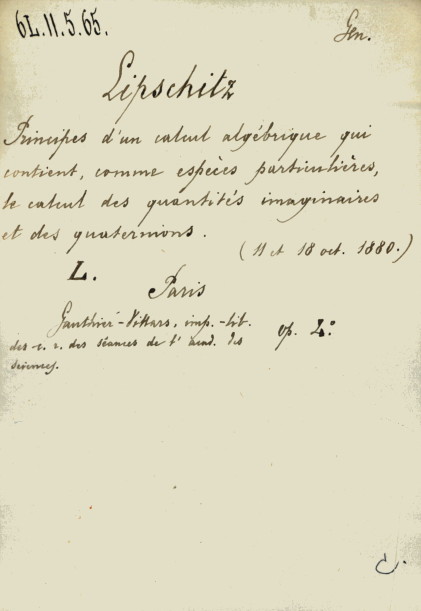 6L.11.5.65.
Gen.
Lipschitz
Principes d'un calcul algébrique qui
contient, comme espèces particulières,
le calcul des quantités imaginaires
et des quaternions.
(11 et 18 oct. 1880.)
L.
Paris
Gauthier-Villars, imp.-lib.
des c. r. des séances de l'acad. des
sciences.
op. 4°
C.